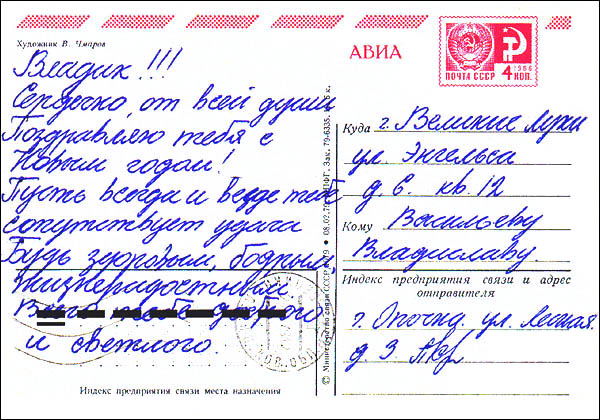 Художник В. Чмаров
АВИА
ПОЧТА СССР
4 КОП.
1966
Владик!!!
Сердечно, от всей души
Поздравляю тебя с
Новым годом!
Пусть всегда и везде тебе
сопутствует удача
Будь здоровым, бодрым,
жизнерадостным
Всего тебе доброго
и светлого.
Индекс предприятия связи места назначения
© Министерство связи СССР
08.02.79
Зак. 79-6335.
Куда г. Великие Луки
ул. Энгельса
д. 6. кв. 12
Кому Васильеву
Владиславу.
Индекс предприятия связи и адрес
отправителя
г. Опочка. ул. Легкая.
д. 3.